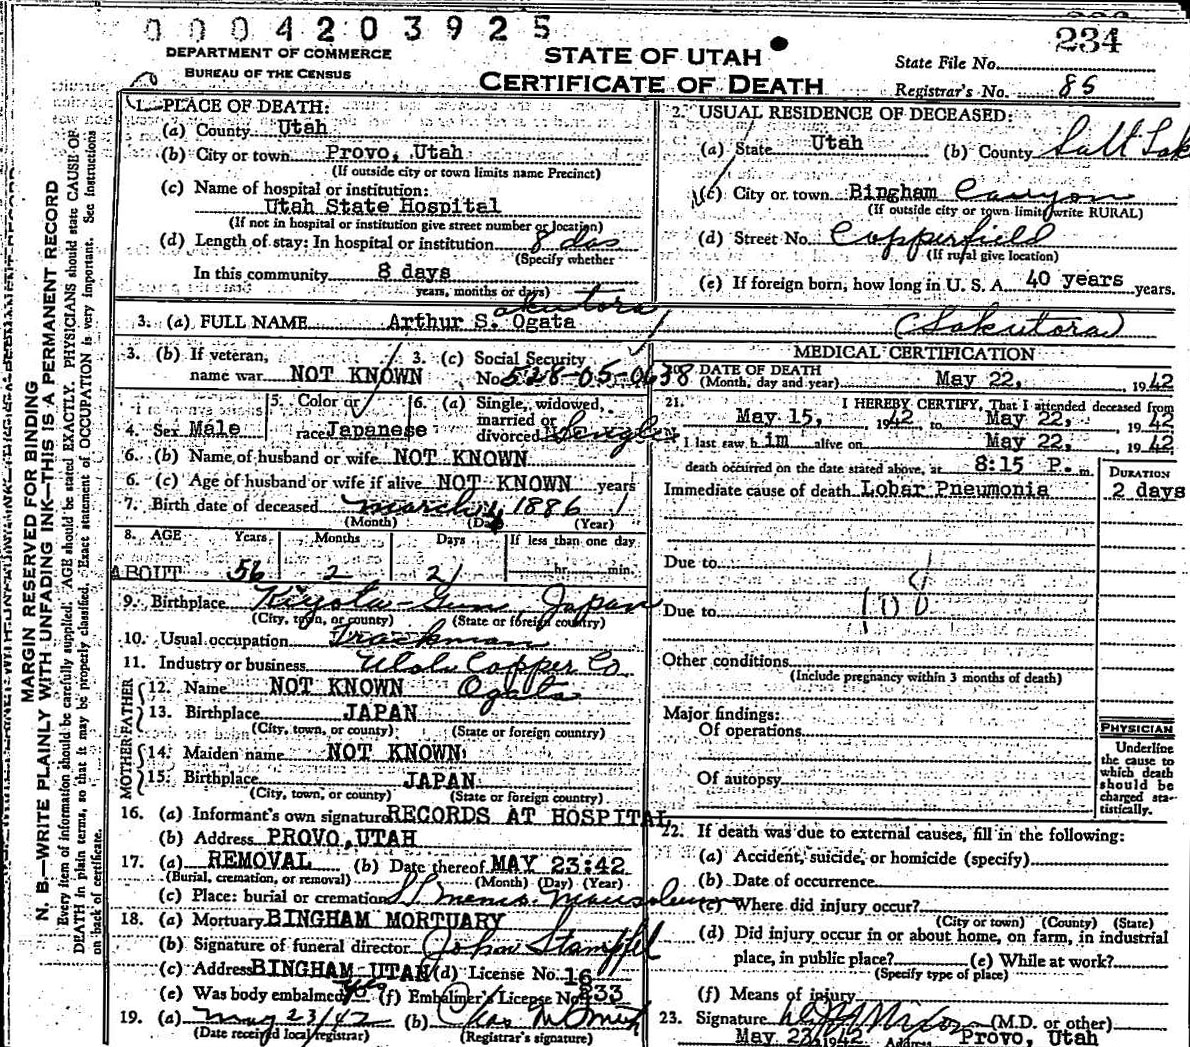 0004203925
234
DEPARTMENT OF COMMERCE
BUREAU OF THE CENSUS
STATE OF UTAH
CERTIFICATE OF DEATH
State File No.
Registrar's No. 85
MARGIN RESERVED FOR BINDING
N. B.—WRITE PLAINLY WITH UNFADING INK—THIS IS A PERMANENT RECORD
Every item of information should be carefully supplied. AGE should be stated EXACTLY. PHYSICIANS should state CAUSE OF
DEATH in plain terms, so that it may be properly classified. Exact statement of OCCUPATION is very important. See Instructions
on back of certificate.
1. PLACE OF DEATH:
(a) County Utah
(b) City or town Provo, Utah
(If outside city or town limits name Precinct)
(c) Name of hospital or institution:
Utah State Hospital
(If not in hospital or institution give street number or location)
(d) Length of stay: In hospital or institution 8 das
(Specify whether
In this community 8 days
years, months or days)
2. USUAL RESIDENCE OF DECEASED:
(a) State Utah (b) County Salt Lak
(c) City or town Bingham Canyon
(If outside city or town limits write RURAL)
(d) Street No. Copperfield
(If rural give location)
(e) If foreign born, how long in U. S. A. 40 years years.
3. (a) FULL NAME Arthur S. Ogata akutora (Sakutora)
3. (b) If veteran, name war NOT KNOWN
3. (c) Social Security No. 528-05-0638
4. Sex Male
5. Color or race Japanese
6. (a) Single, widowed, married or divorced Single
6. (b) Name of husband or wife NOT KNOWN
6. (c) Age of husband or wife if alive NOT KNOWN years
7. Birth date of deceased March 1, 1886
(Month) (Day) (Year)
8. AGE Years Months Days If less than one day
ABOUT 56 2 21 hr. min.
9. Birthplace Kiyota-Gun, Japan
(City, town, or county) (State or foreign country)
10. Usual occupation Trackman
11. Industry or business Utah Copper Co
FATHER
12. Name NOT KNOWN Ogata
13. Birthplace JAPAN
(City, town, or county) (State or foreign country)
MOTHER
14. Maiden name NOT KNOWN
15. Birthplace JAPAN
(City, town, or county) (State or foreign country)
16. (a) Informant's own signature RECORDS AT HOSPITAL
(b) Address PROVO, UTAH
17. (a) REMOVAL (b) Date thereof MAY 23:42
(Burial, cremation, or removal) (Month) (Day) (Year)
(c) Place: burial or cremation SL Memo. Mausoleum
18. (a) Mortuary BINGHAM MORTUARY
(b) Signature of funeral director John Stampfel
(c) Address BINGHAM UTAH (d) License No. 16
(e) Was body embalmed yes (f) Embalmer's License No. 333
19. (a) May 23/42 (b)
(Date received local registrar) (Registrar's signature)
MEDICAL CERTIFICATION
DATE OF DEATH
(Month, day and year) May 22, 1942
21. I HEREBY CERTIFY, That I attended deceased from
May 15, 1942 to May 22, 1942
I last saw him alive on May 22, 1942
death occurred on the date stated above, at 8:15 P. m.
DURATION
Immediate cause of death Lobar Pneumonia 2 days
Due to
Due to 108
Other conditions
(Include pregnancy within 3 months of death)
Major findings:
Of operations
Of autopsy
PHYSICIAN
Underline
the cause to
which death
should be
charged sta-
tistically.
22. If death was due to external causes, fill in the following:
(a) Accident, suicide, or homicide (specify)
(b) Date of occurrence
(c) Where did injury occur?
(City or town) (County) (State)
(d) Did injury occur in or about home, on farm, in industrial
place, in public place? (e) While at work?
(Specify type of place)
(f) Means of injury
23. Signature (M.D. or other)
May 23, 1942 Address Provo, Utah